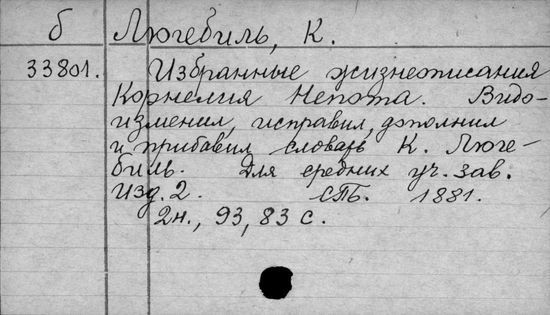 б Люгебиль, К.
33801. Избранные жизнеописания
Корнелия Непота. Видо-
изменил, исправил, дополнил
и прибавил словарь К. Люге-
биль. Для средних уч. зав.
Изд. 2. СПб. 1881.
2н., 93, 83 с.